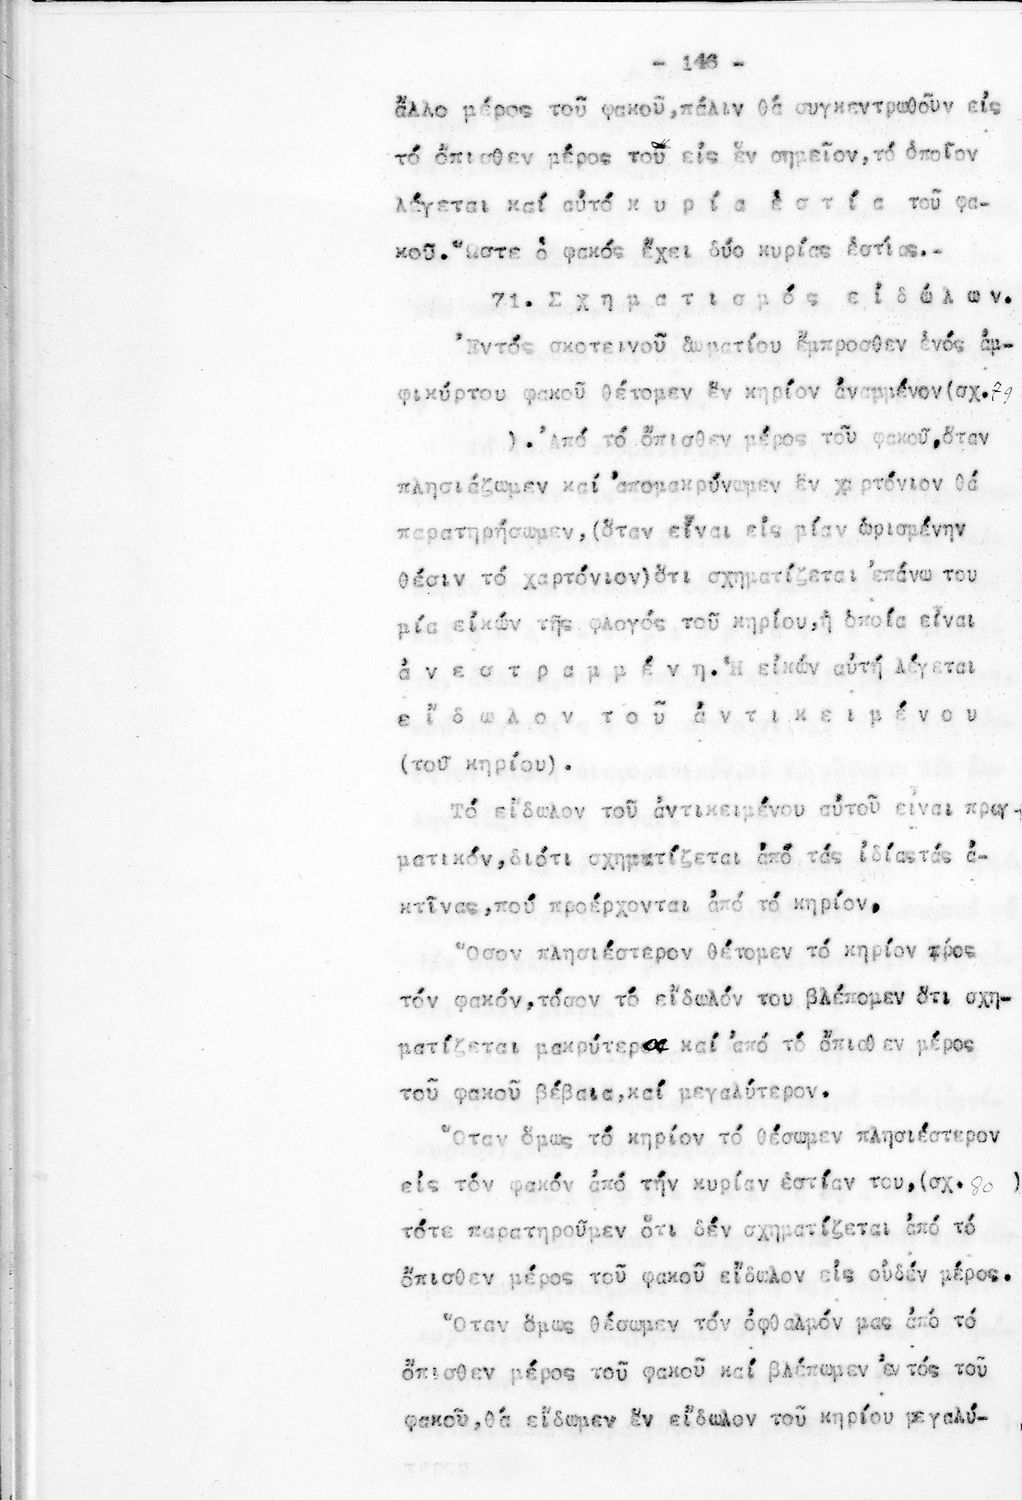 - 146 -
ἄλλο μέρος τοῦ φακοῦ,πάλιν θά συγκεντρωθοῦν εἰς
τό ὄπισθεν μέρος τοῦ εἰς ἕν σημεῖον,τό ὁποῖον
λέγεται καί αὐτό κ υ ρ ί α ἑ σ τ ί α τοῦ φα-
κοῦ.Ὥστε ὁ φακός ἔχει δύο κυρίας ἑστίας.-
71. Σ χ η μ α τ ι σ μ ό ς ε ἰ δ ώ λ ω ν.
Ἐντός σκοτεινοῦ δωματίου ἔμπροσθεν ἑνός ἀμ-
φικύρτου φακοῦ θέτομεν ἕν κηρίον ἀναμμένον(σχ.79
).Ἀπό τό ὄπισθεν μέρος τοῦ φακοῦ,ὅταν
πλησιάζωμεν καί ἀπομακρύνωμεν ἕν χαρτόνιον θά
παρατηρήσωμεν,(ὅταν εἶναι εἰς μίαν ὡρισμένην
θέσιν τό χαρτόνιον)ὅτι σχηματίζεται ἐπάνω του
μία εἰκών τῆς φλογός τοῦ κηρίου,ἡ ὁποία εἶναι
ἀ ν ε σ τ ρ α μ μ έ ν η.Ἡ εἰκών αὐτή λέγεται
ε ἴ δ ω λ ο ν τ ο ῦ ἀ ν τ ι κ ε ι μ έ ν ο υ
(τοῦ κηρίου).
Τό εἴδωλον τοῦ ἀντικειμένου αὐτοῦ εἶναι πραγ-
ματικόν,διότι σχηματίζεται ἀπό τάς ἰδίαςτάς ἀ-
κτῖνας,πού προέρχονται ἀπό τό κηρίον.
Ὅσον πλησιέστερον θέτομεν τό κηρίον πρός
τόν φακόν,τόσον τό εἴδωλόν του βλέπομεν ὅτι σχη-
ματίζεται μακρύτερα καί ἀπό τό ὄπισθεν μέρος
τοῦ φακοῦ βέβαια,καί μεγαλύτερον.
Ὅταν ὅμως τό κηρίον τό θέσωμεν πλησιέστερον
εἰς τόν φακόν ἀπό τήν κυρίαν ἑστίαν του,(σχ.80 )
τότε παρατηροῦμεν ὅτι δέν σχηματίζεται ἀπό τό
ὄπισθεν μέρος τοῦ φακοῦ εἴδωλον εἰς οὐδέν μέρος.
Ὅταν ὅμως θέσωμεν τόν ὀφθαλμόν μας ἀπό τό
ὄπισθεν μέρος τοῦ φακοῦ καί βλέπωμεν ἐντός τοῦ
φακοῦ,θά εἴδωμεν ἕν εἴδωλον τοῦ κηρίου μεγαλύ-